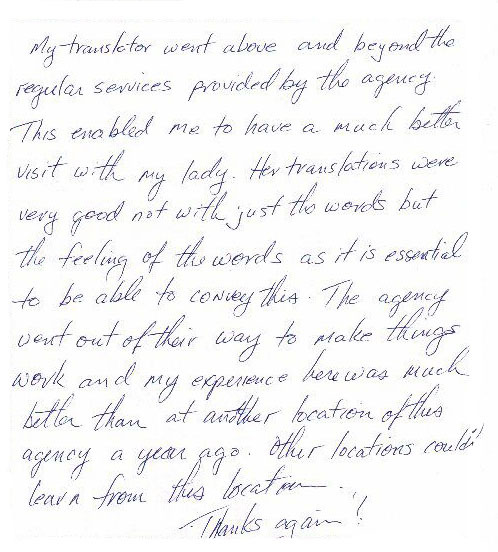 My translator went above and beyond the
regular services provided by the agency.
This enabled me to have a much better
visit with my lady. Her translations were
very good not with just the words but
the feeling of the words as it is essential
to be able to convey this. The agency
went out of their way to make things
work and my experience here was much
better than at another location of this
agency a year ago. Other locations could
learn from this location.
Thanks again!